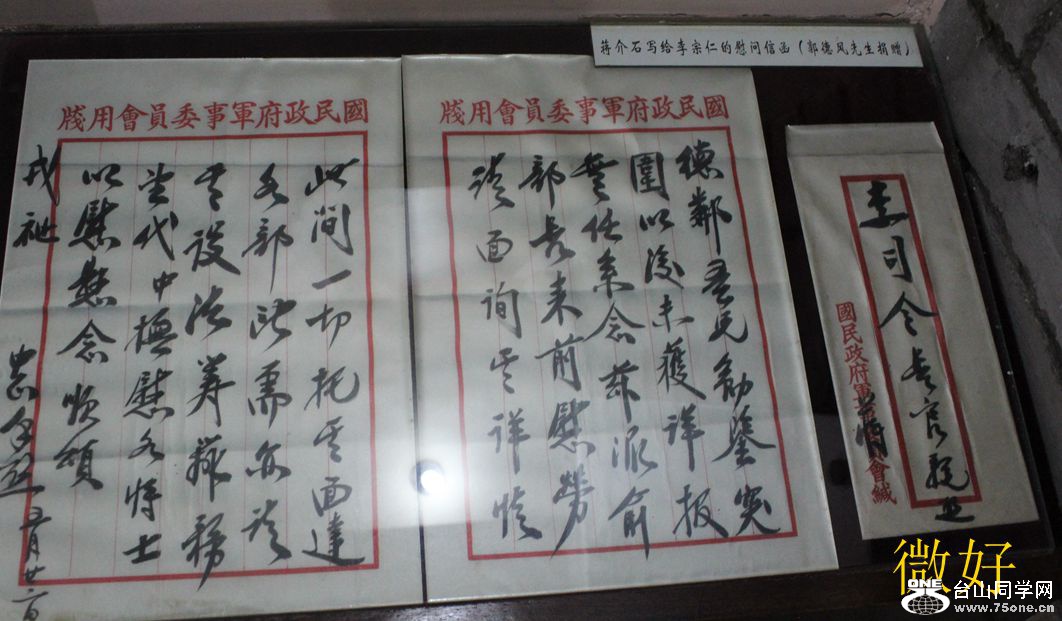 蒋介石写给李宗仁的慰问信函（郭德风先生捐赠）
國民政府軍事委員會用牋
德鄰吾兄勛鑒突
圍以後未獲詳報
無任系念茲派俞
部長来前慰勞
面詢詳情
國民政府軍事委員會用牋
此間一切托其面達
各部所需亦請
其設法籌辦務
望代中撫慰各將士
以慰懸念順頌
戎祉
五月廿日
李司令長官
國民政府軍會緘
蔣
微好
ONE
台山同学网
www.75one.cn